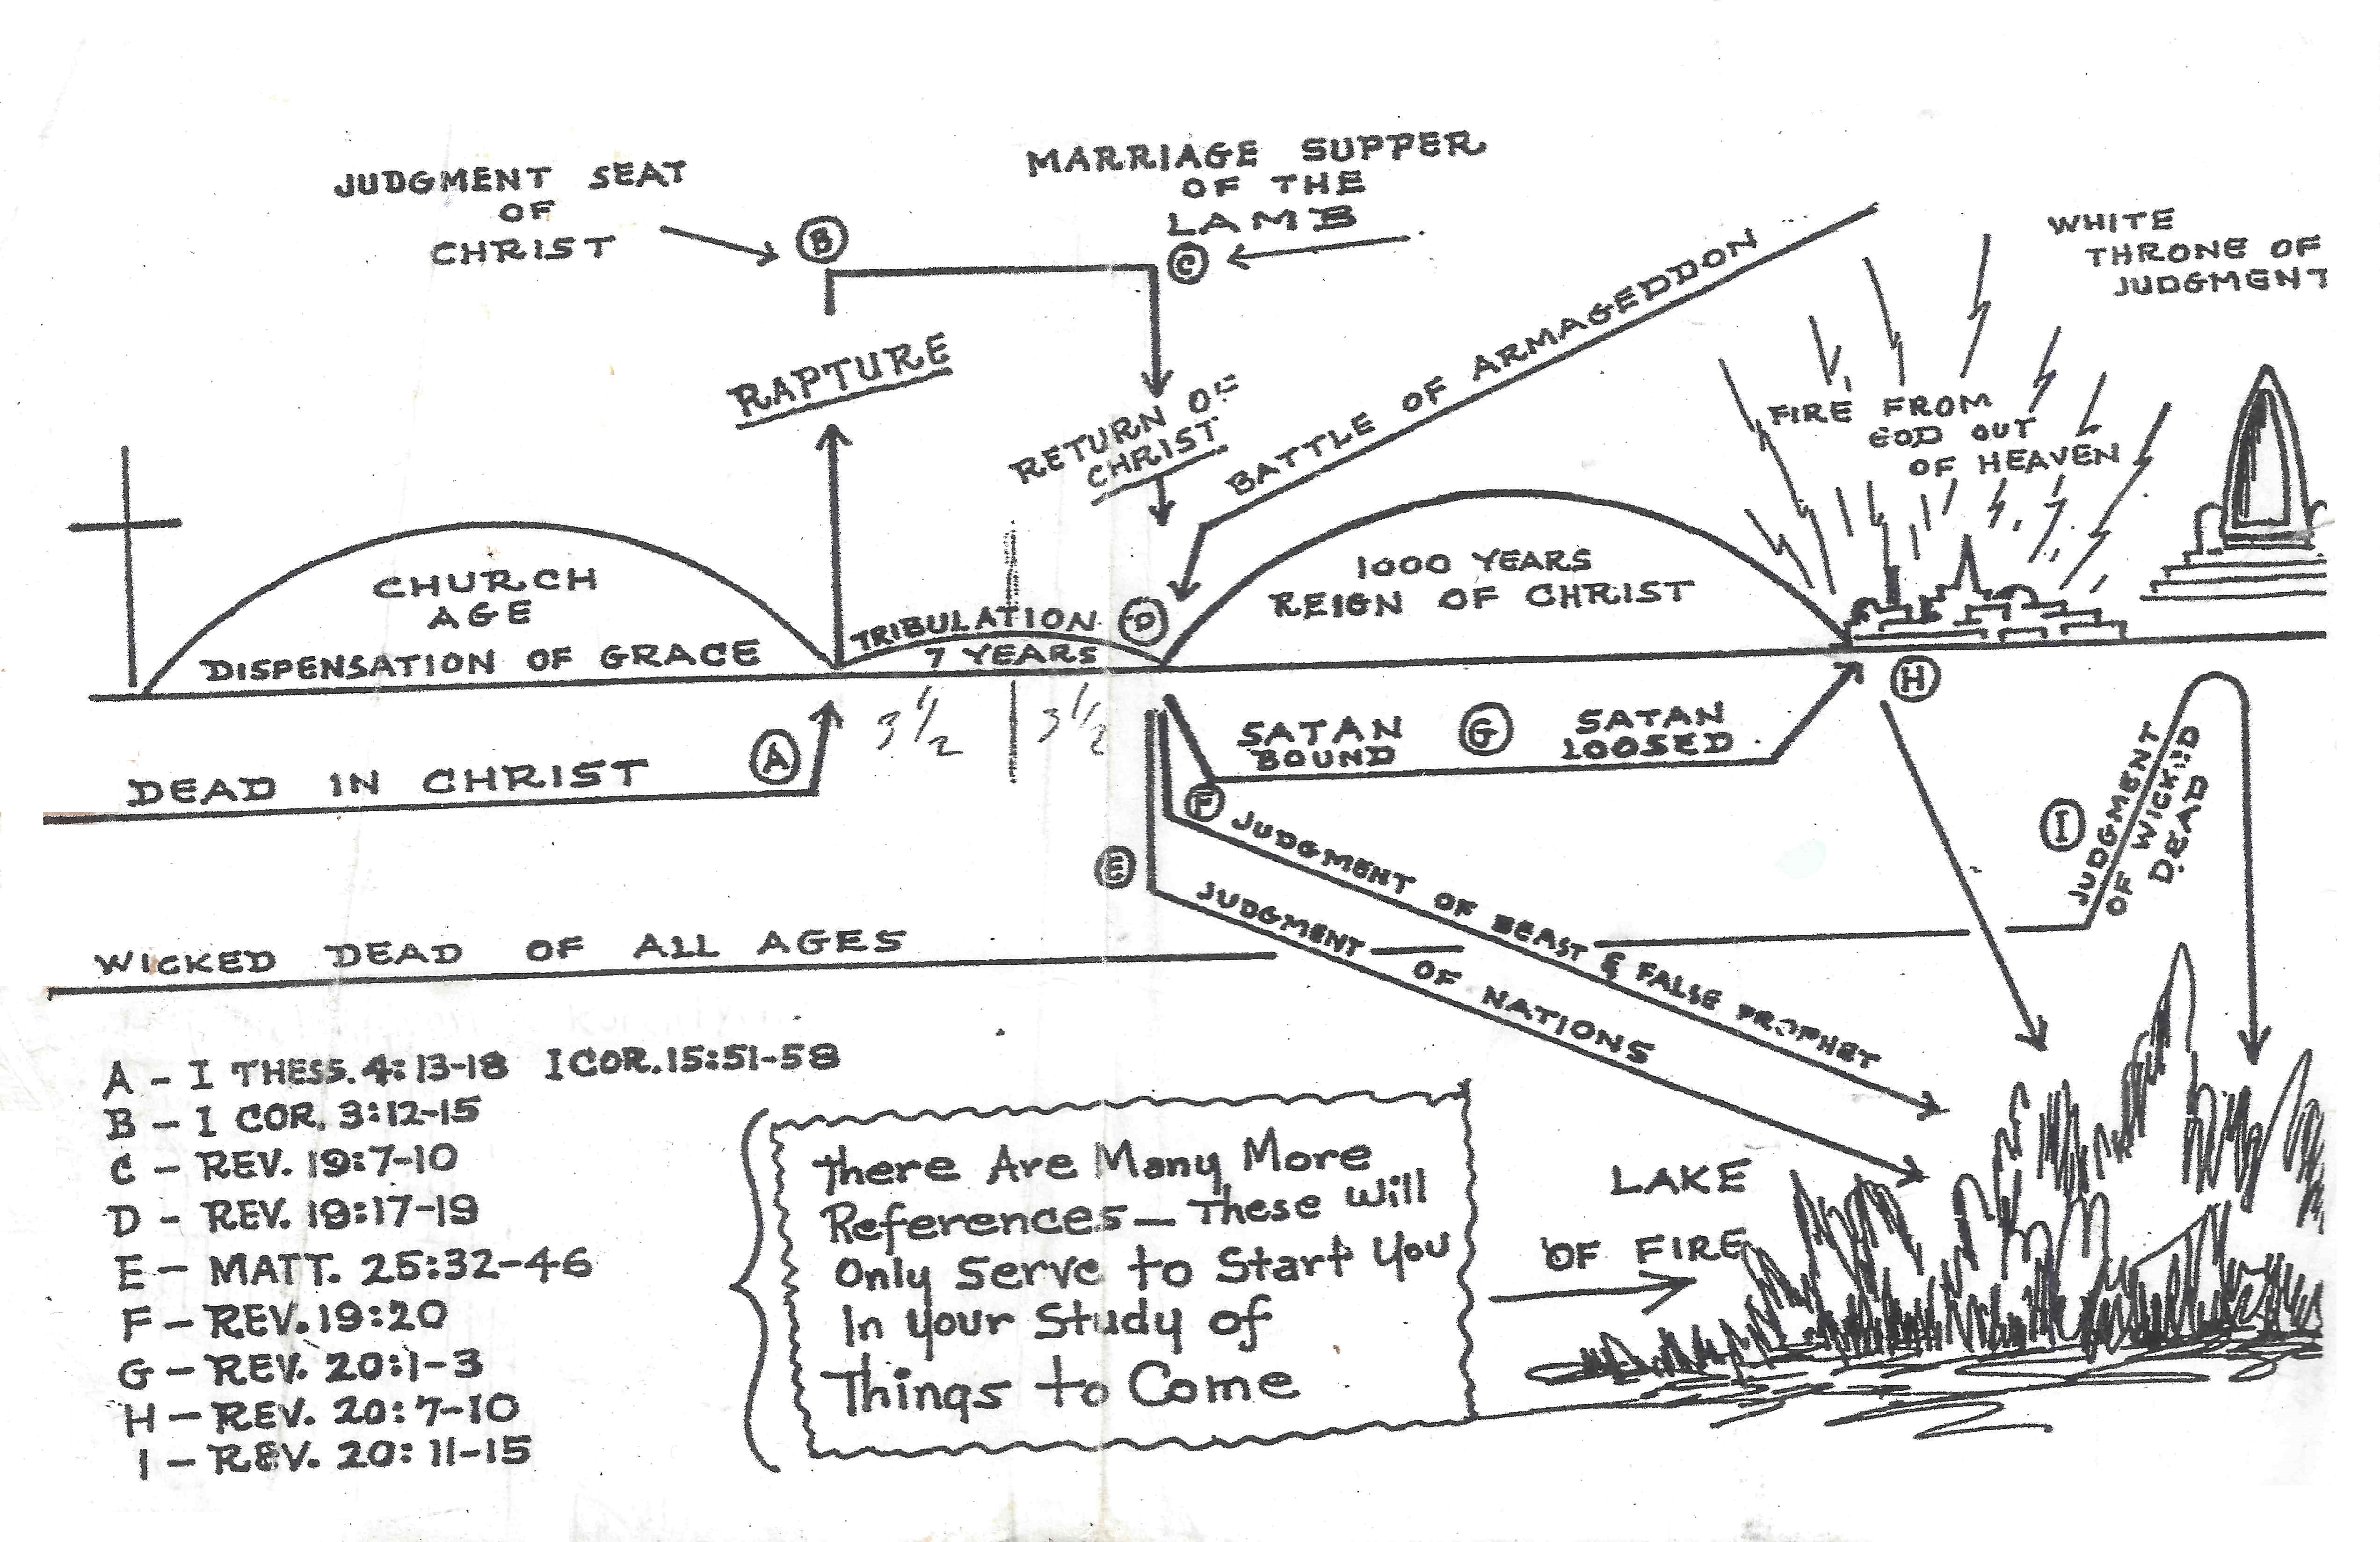 JUDGMENT SEAT
OF
CHRIST
B
MARRIAGE SUPPER
OF THE
LAMB
C
WHITE
THRONE OF
JUDGMENT
RAPTURE
RETURN OF
CHRIST
BATTLE OF ARMAGEDDON
FIRE FROM
GOD OUT
OF HEAVEN
CHURCH
AGE
DISPENSATION OF GRACE
TRIBULATION
7 YEARS
D
1000 YEARS
REIGN OF CHRIST
3 1/2
3 1/2
A
DEAD IN CHRIST
SATAN
BOUND
G
SATAN
LOOSED
H
F
JUDGMENT OF BEAST & FALSE PROPHET
E
JUDGMENT OF NATIONS
I
JUDGMENT
OF WICKED
DEAD
WICKED DEAD OF ALL AGES
A - I THESS. 4:13-18 I COR. 15:51-58
B - I COR. 3:12-15
C - REV. 19:7-10
D - REV. 19:17-19
E - MATT. 25:32-46
F - REV. 19:20
G - REV. 20:1-3
H - REV. 20:7-10
I - REV. 20:11-15
there Are Many More
References - These Will
Only Serve to Start You
In your Study of
Things to Come
LAKE
OF FIRE